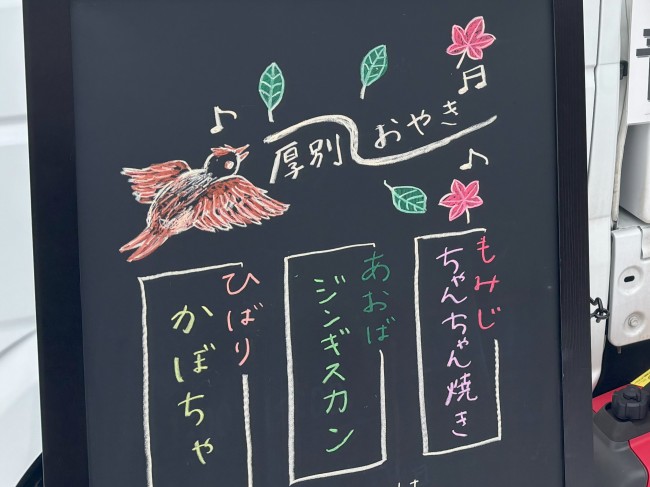 厚別 おやき
もみじ
ちゃんちゃん焼き
あおば
ジンギスカン
ひばり
かぼちゃ